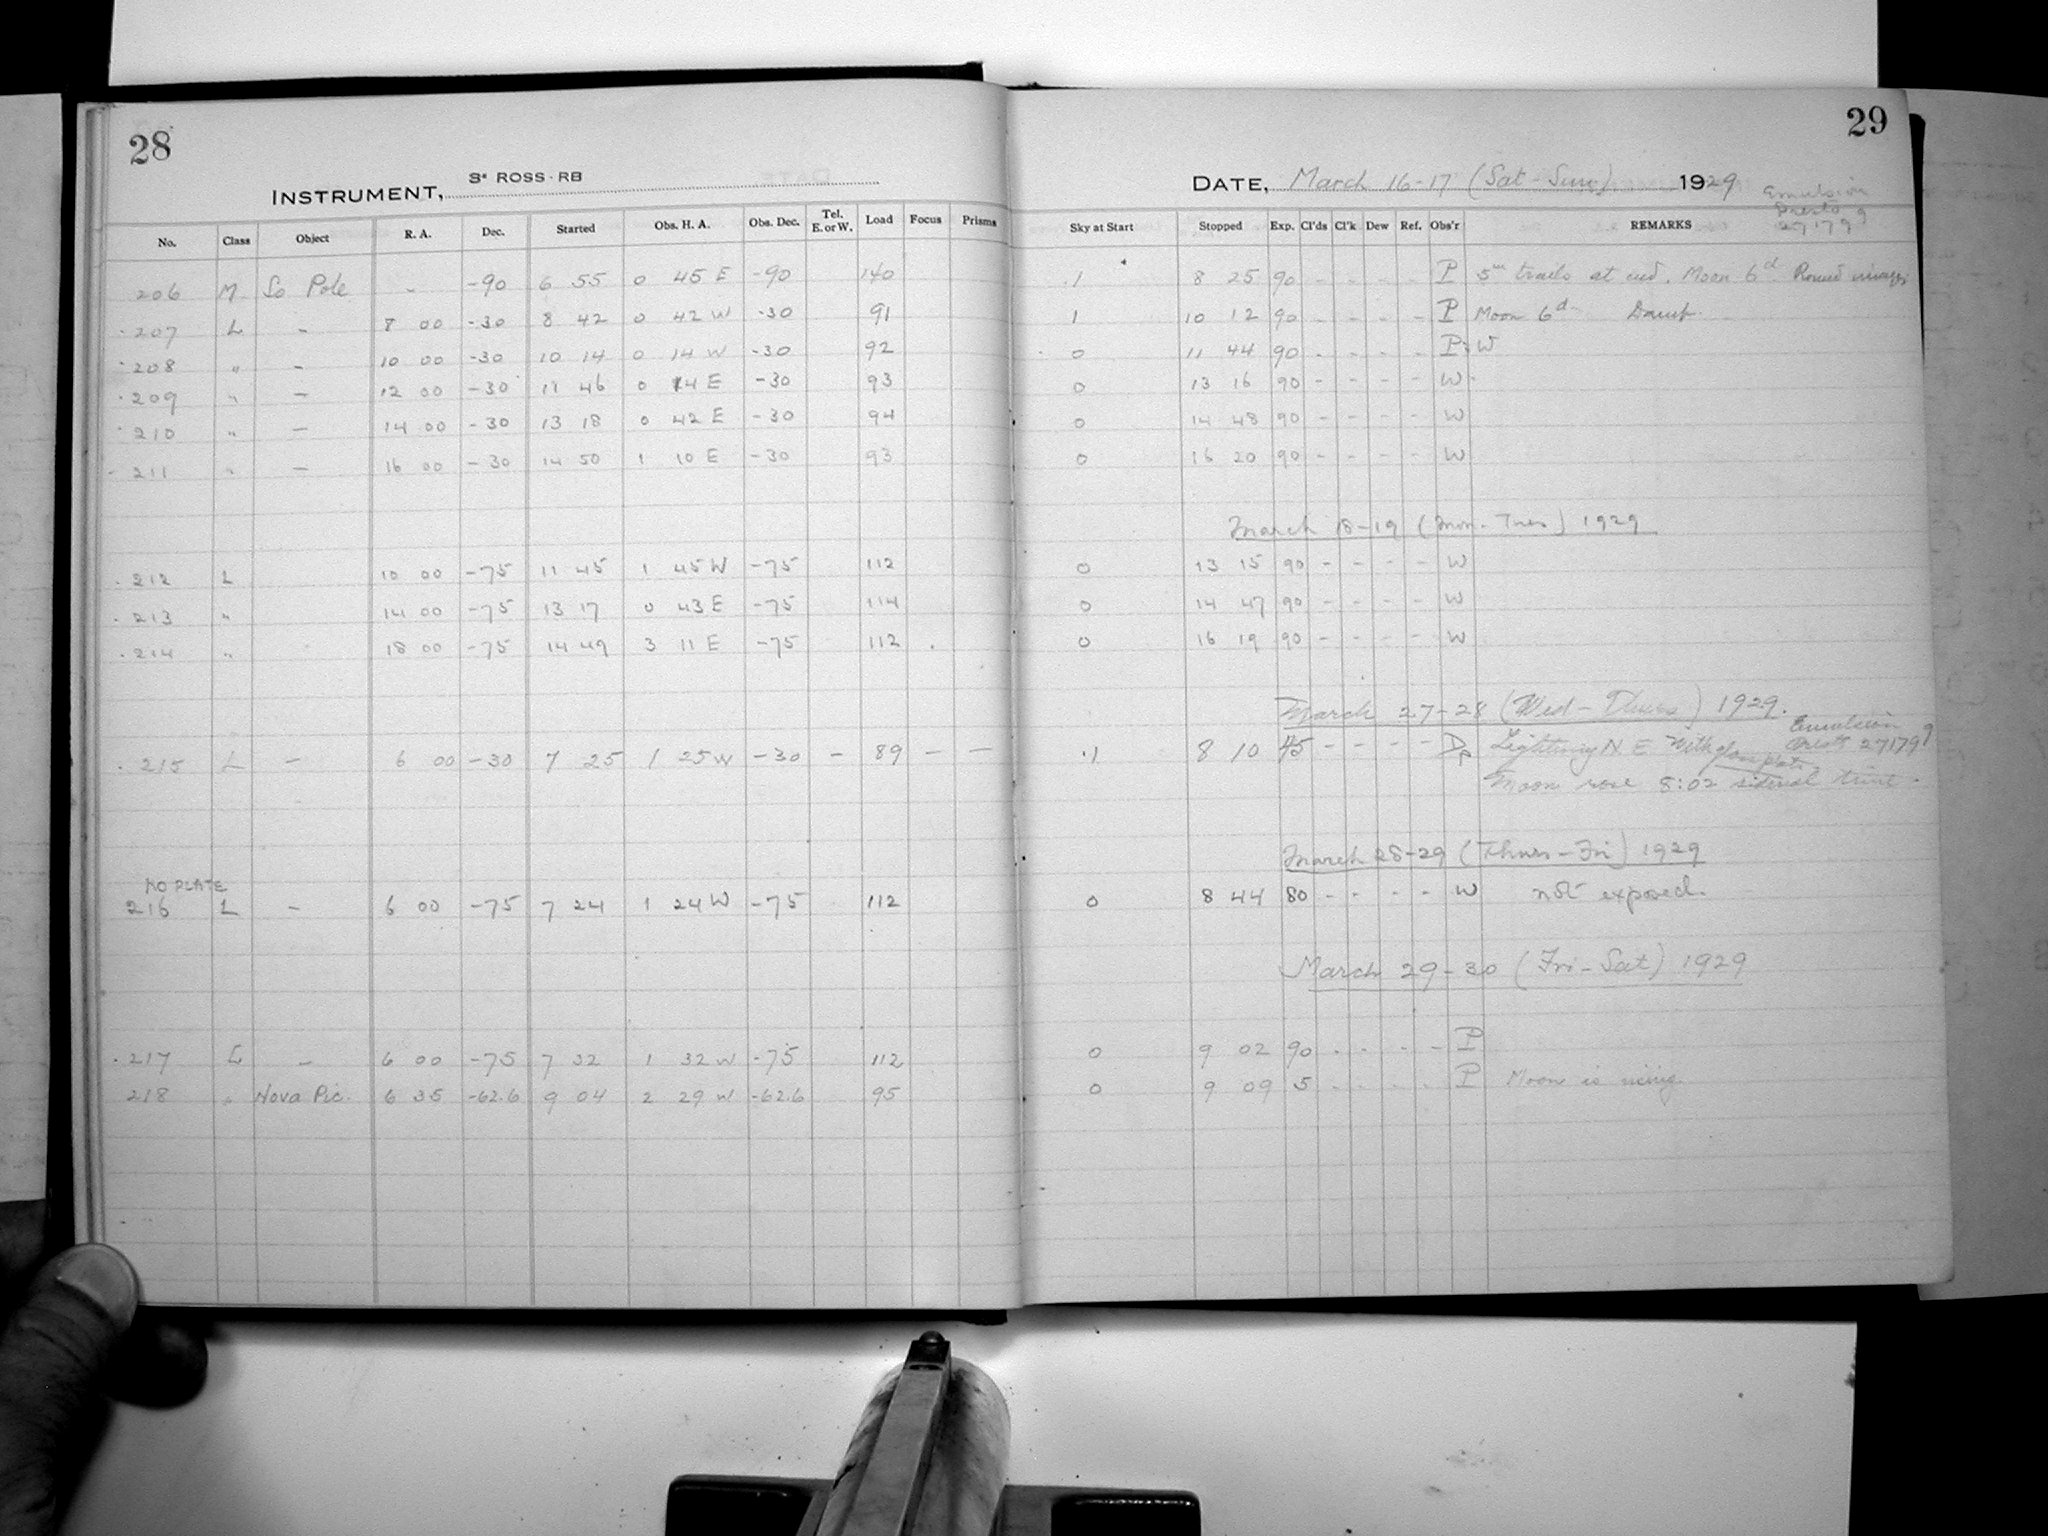 28
INSTRUMENT, 3" ROSS-RB
No. Class Object R. A. Dec. Started Obs. H. A. Obs. Dec. Tel. E. or W. Load Focus Prisms
206 M So Pole - -90 6 55 0 45 E -90 140
207 L - 8 00 -30 8 42 0 42 W -30 91
208 " - 10 00 -30 10 14 0 14 W -30 92
209 " - 12 00 -30 11 46 0 14 E -30 93
210 " - 14 00 -30 13 18 0 42 E -30 94
211 " - 16 00 -30 14 50 1 10 E -30 93
212 L 10 00 -75 11 45 1 45 W -75 112
213 " 14 00 -75 13 17 0 43 E -75 114
214 " 18 00 -75 14 49 3 11 E -75 112
215 L - 6 00 -30 7 25 1 25 W -30 - 89 - -
NO PLATE
216 L - 6 00 -75 7 24 1 24 W -75 112
217 L - 6 00 -75 7 32 1 32 W -75 112
218 " Nova Pic. 6 35 -62.6 9 04 2 29 W -62.6 95
29
DATE, March 16-17 (Sat-Sun) 1929
Emulsion
Presto
271799
Sky at Start Stopped Exp. Cl'ds Cl'k Dew Ref. Obs'r REMARKS
1 8 25 90 - - - - P 5m trails at end. Moon 6d Round images
1 10 12 90 - - - - P Moon 6d Damp
0 11 44 90 - - - - P:W
0 13 16 90 - - - - W
0 14 48 90 - - - - W
0 16 20 90 - - - - W
March 18-19 (Mon-Tues) 1929
0 13 15 90 - - - - W
0 14 47 90 - - - - W
0 16 19 90 - - - - W
March 27-28 (Wed-Thurs) 1929.
Emulsion
1 8 10 45 - - - - Dp Lightning N.E. With Presto 271799
Moon rose 8:02 sidereal time.
March 28-29 (Thurs-Fri) 1929
0 8 44 80 - - - - W not exposed.
March 29-30 (Fri-Sat) 1929
0 9 02 90 - - - - P
0 9 09 5 - - - - P Moon is rising